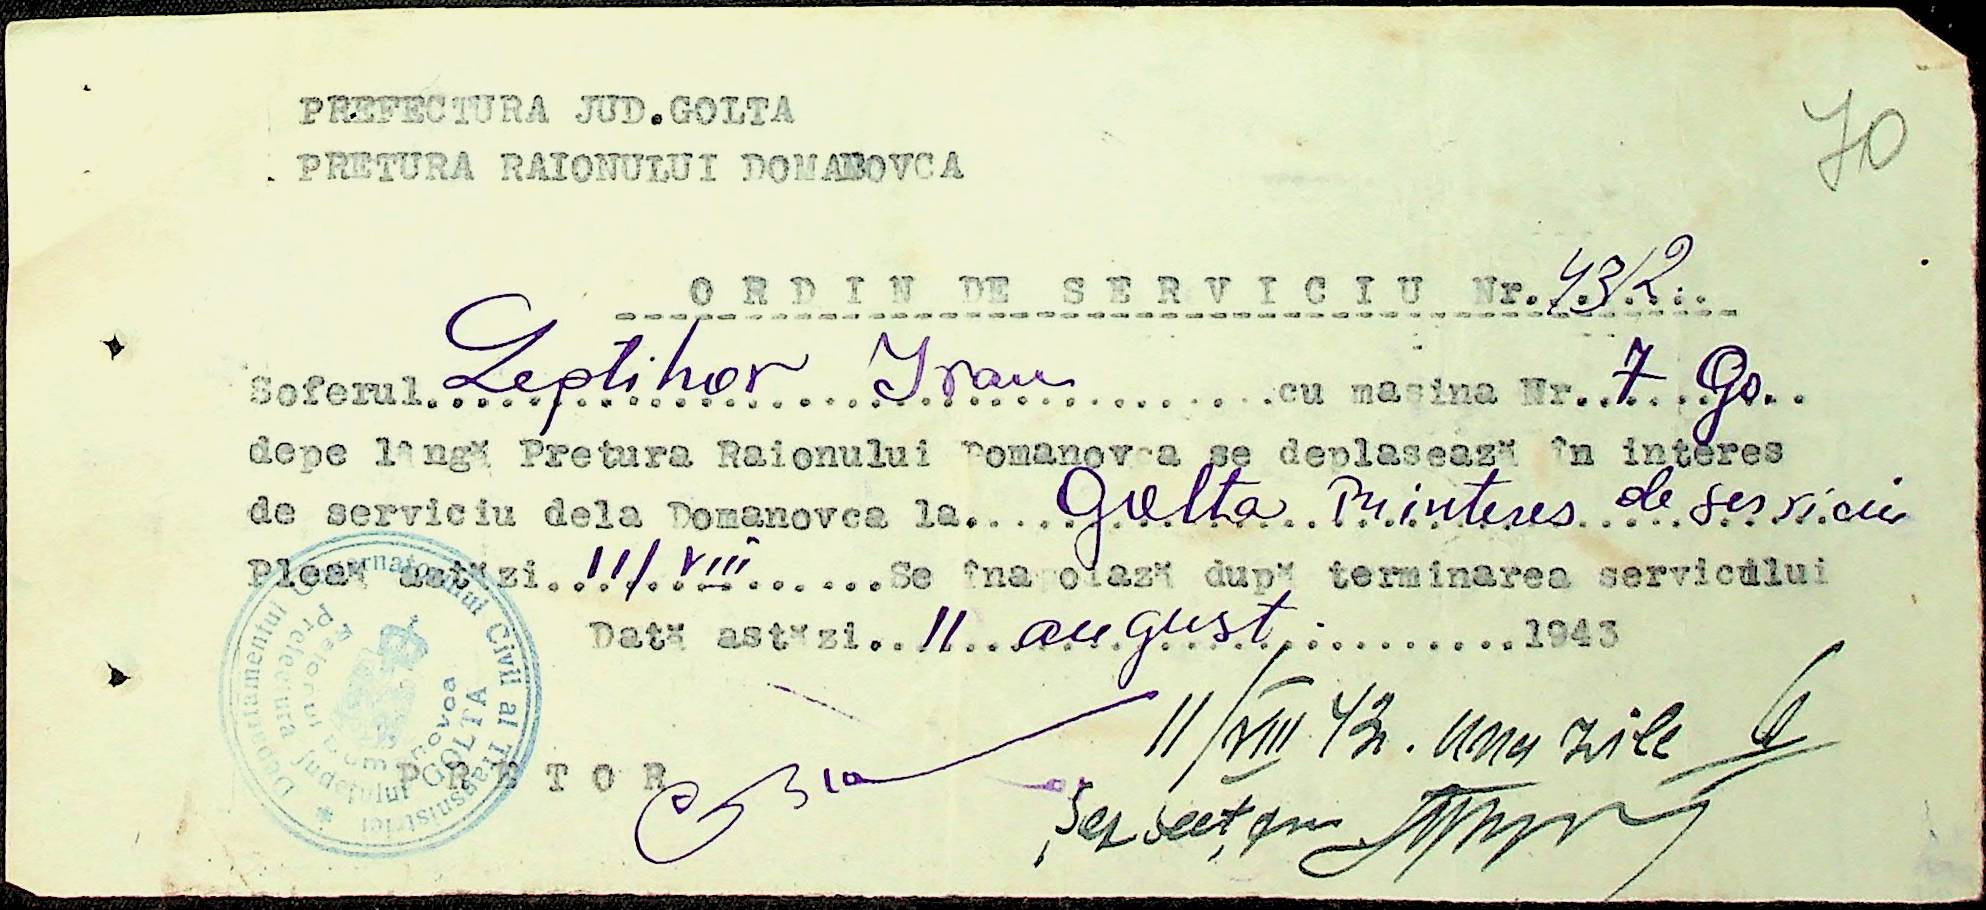 70
PREFECTURA JUD.GOLTA
PRETURA RAIONULUI DOMANOVCA
ORDIN DE SERVICIU Nr. 4312
Soferul Leptihov Ivan cu masina Nr. 7 Go.
depe lângă Pretura Raionului Domanovca se deplasează în interes
de serviciu dela Domanovca la Golta în interes de serviciu
Pleaă astăzi 11/VIII Se îna oiază după terminarea serviciului
Dată astăzi 11 august 1943
11/VIII 43. unu zile
PRETOR
Șef secț,
Departamentul Guvernatorului Civil al Transnistriei
Prefectura Județului GOLTA